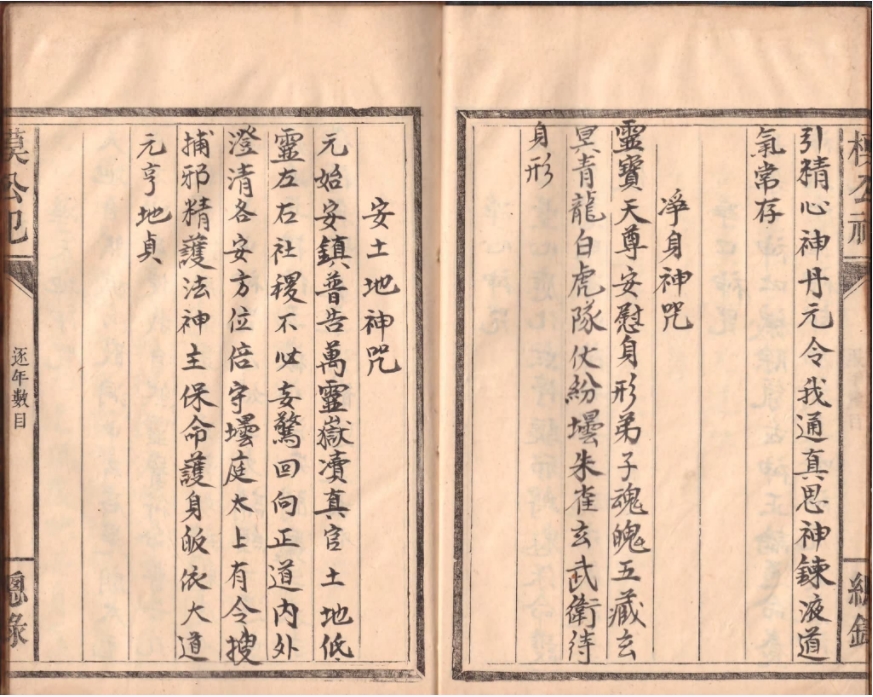 模公祀
總錄
引精心神丹元令我通真思神鍊液道
氣常存
凈身神咒
靈寶天尊安慰身形弟子魂魄五藏玄
冥青龍白虎隊仗紛壜朱雀玄武衛待
身形
安土地神咒
元始安鎮普告萬靈嶽瀆真官土地低
靈左右社稷不妄驚回向正道內外
澄清各安方位倍守壜庭太上有令搜
捕邪精護法神主保命護身皈依大道
元亨地貞
模公祀
逐年數目
總錄